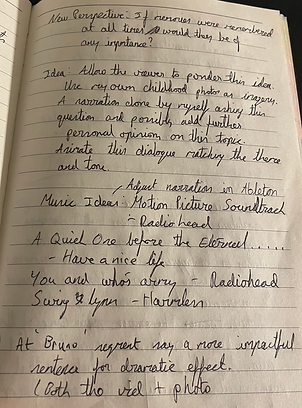 New Perspective: If memories were remembered
at all times would they be of
any importance?
Idea: Allow the viewer to ponder this idea.
Use my own childhood photos as imagery.
A narration done by myself asking this
question and possibly add further
personal opinion on this topic.
Animate this dialogue matching the theme
and tone.
Adjust narration in Ableton
Music Ideas: Motion Picture Soundtrack
- Radiohead
A Quiet One before the Eternal......
- Have a nice life
You and who's army - Radiohead
Swing Lynn - Harmless
At "Bruno" segment say a more impactful
sentence for dramatic effect.
(Both the vid + photo